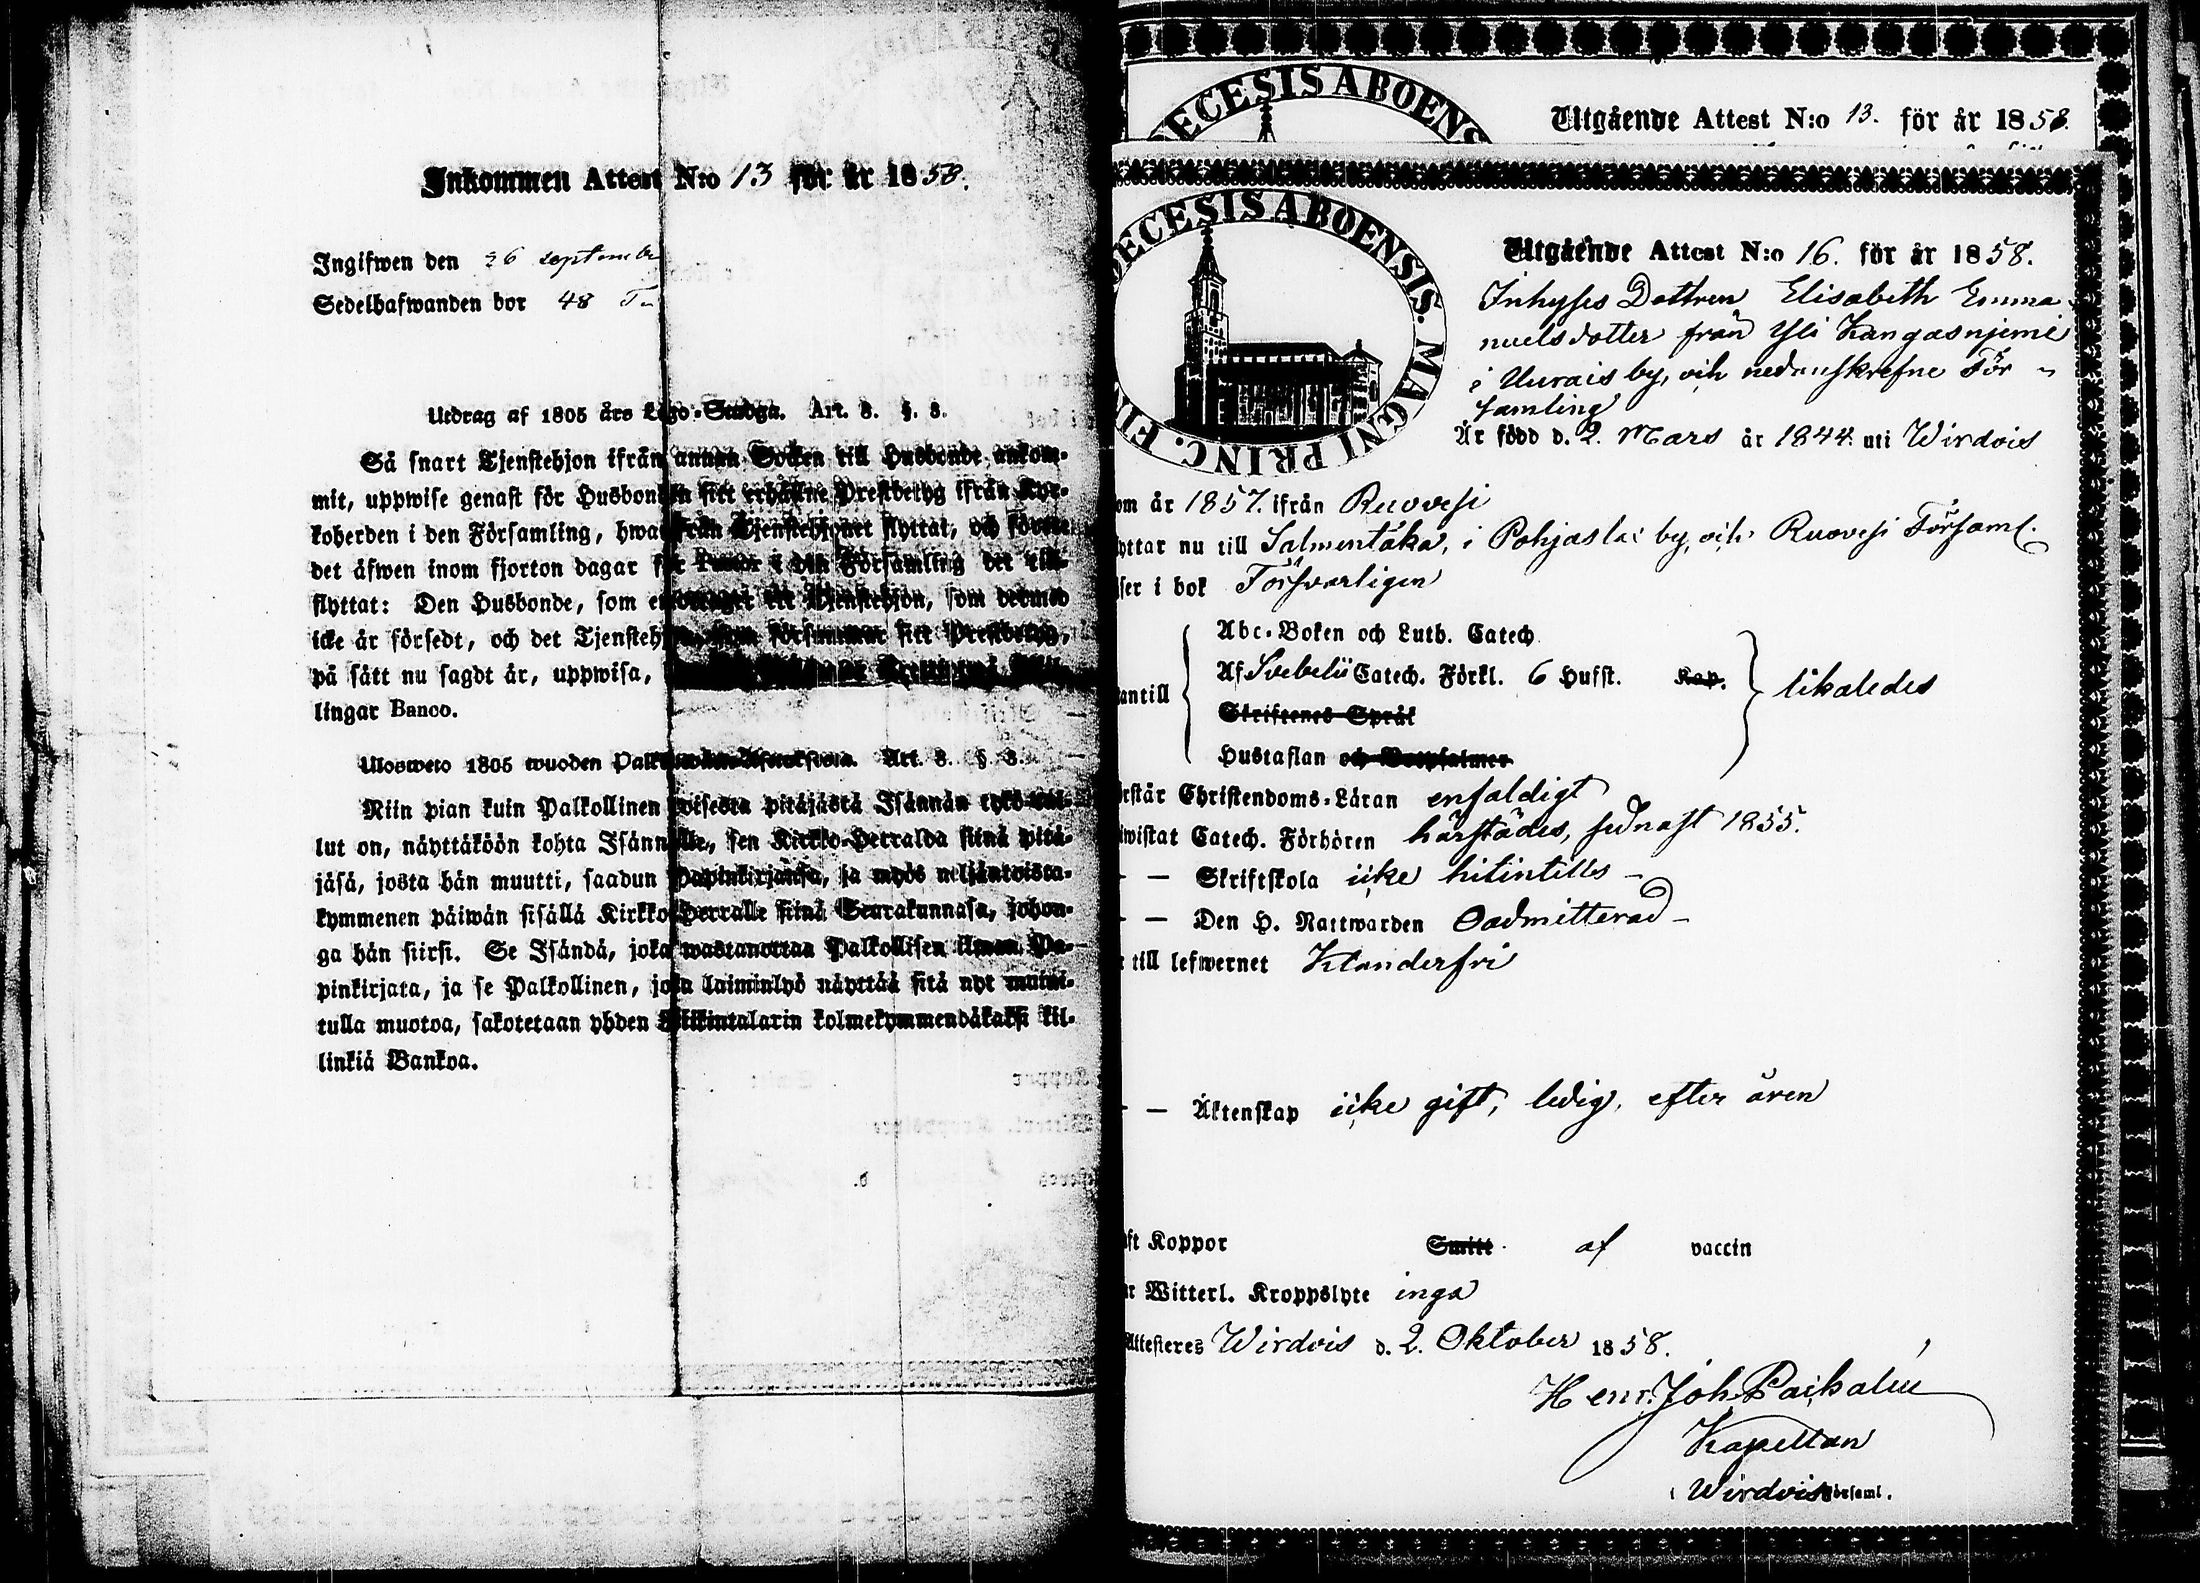 Inkommen Attest N:o 13 för år 1858.
Ingifwen den 26 septembr
Sedelhafwanden bor 48
Utdrag af 1805 års Lego-Stadga. Art. 8. §. 8.
Så snart Tjenstehjon ifrån annan Socken till Husbonde ankom-
mit, uppwise genast för Husbonden sitt erhållne Prestbetyg ifrån Kyr-
koherden i den Församling, hwarifrån Tjenstehjonet flyttat, och
det äfwen inom fjorton dagar för Pastor i den Församling det till-
flyttat: Den Husbonde, som emottager ett Tjenstehjon, som dermed
icke är försedt, och det Tjenstehjon, som försummar sitt Prestbetyg,
på sätt nu sagdt är, uppwisa,
lingar Banco.
Ulosweto 1805 wuoden Art. 8. § 8.
Niin pian kuin Palkollinen toisesta pitäjästä Isännän tykö tul-
lut on, näyttäköön kohta Isännälle, sen Kirkko-Herralda siinä pitä-
jäsä, josta hän muutti, saadun Papinkirjansa, ja myös neljäntoista-
kymmenen päiwän sisällä Kirkko-Herralle siinä Seurakunnasa, johon-
ga hän siirsi. Se Isändä, joka wastanottaa Palkollisen ilman Pa-
pinkirjata, ja se Palkollinen, joka laiminlyö näyttää sitä nyt maini-
tulla muotoa, sakotetaan yhden Riikintalarin kolmekymmendäkaksi kil-
linkiä Bankoa.
ECESIS ABOENS
Utgående Attest N:o 13. för år 1858.
DECESIS ABOENSIS. MAGNI PRINC. FI
Utgående Attest N:o 16. för år 1858.
Inhyses Dottren Elisabeth Emma-
nuelsdotter från Yli Kangasnjemi
i Uurais by, och nedanskrefne För-
samling
Är född d. 2. Mars år 1844. uti Wirdois
om år 1857. ifrån Ruovesi
yttar nu till Salmentaka, i Pohjaslax by, och Ruovesi Församl.
ser i bok Försvarligen
Abc-Boken och Luth. Catech
antill Af Svebelii Catech. Förkl. 6 Hufst. Kap. likaledes
Skriftenes Språk
Hustaflan och Botpsalmer
rstår Christendoms-Läran enfaldigt
iwistat Catech. Förhören härstädes, sednast 1855.
— — Skriftskola icke hitintills —
— — Den H. Nattwarden Oadmitterad —
r till lefwernet Klanderfri
— — Äktenskap icke gift, ledig, efter åren
ft Koppor Smitt af vaccin
ar Witterl. Kroppslyte inga
Attesteres Wirdois d. 2. Oktober 1858.
Henr. Joh.
Kapellan
i Wirdois Församl.